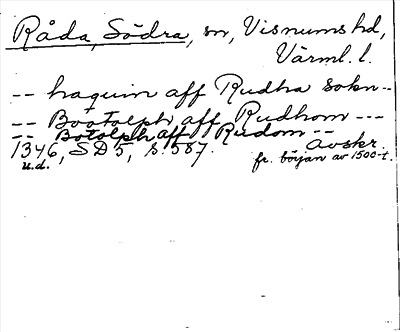 Råda, Södra, sn, Visnums hd,
Värml. l.
-- haquin aff Rudha sokn --
-- Bootolph aff Rudhom ---
-- Botolph aff Rudom --
1346, SD 5, s. 587. Avskr.
u.d. fr. början av 1500-t.